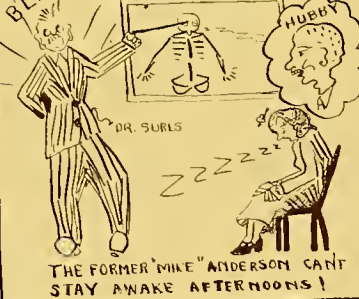 HUBBY
DR. SURLS
ZZZZZZZ
THE FORMER "MIKE" ANDERSON CAN'T
STAY AWAKE AFTERNOONS!